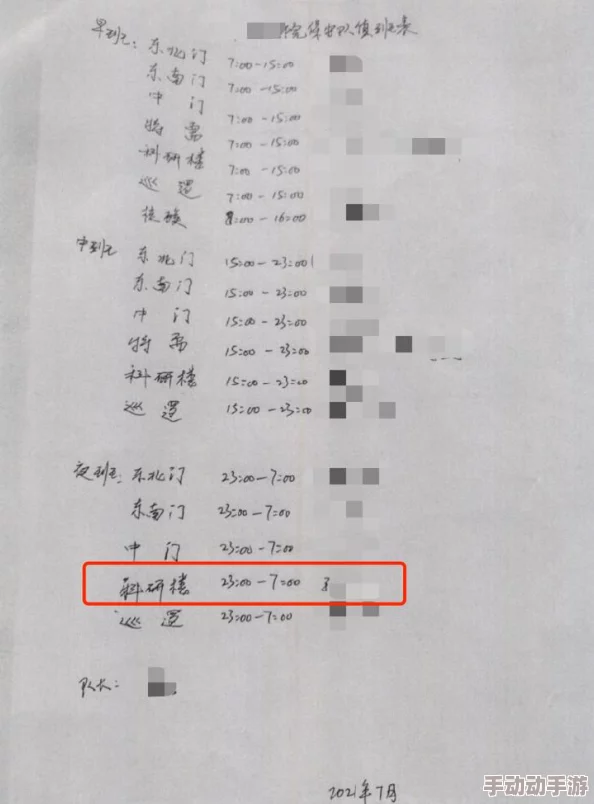 院保安队值班表
早班: 东北门 7:00-15:00
东南门 7:00-15:00
中门 7:00-15:00
特需 7:00-15:00
科研楼 7:00-15:00
巡逻 7:00-15:00
核酸 8:00-16:00
中班 东北门 15:00-23:00
东南门 15:00-23:00
中门 15:00-23:00
特需 15:00-23:00
科研楼 15:00-23:00
巡逻 15:00-23:00
夜班: 东北门 23:00-7:00
东南门 23:00-7:00
中门 23:00-7:00
科研楼 23:00-7:00
巡逻 23:00-7:00
队长:
2021年7月
手动动手游